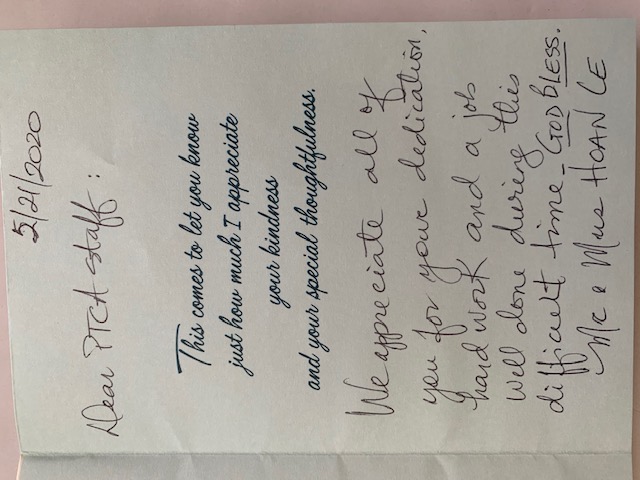 5/21/2020
Dear PTCA staff:
This comes to let you know
just how much I appreciate
your kindness
and your special thoughtfulness.
We appreciate all of
you for your dedication,
hard work and a job
well done during this
difficult time - GOD BLESS.
Mr & Mrs HOAN LE